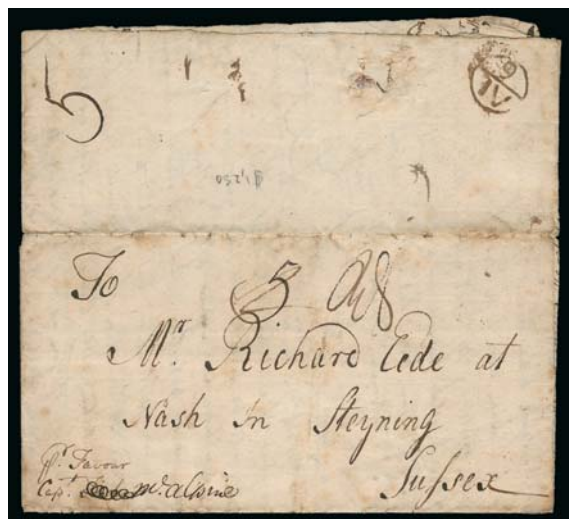 To
Mr. Richard Ede at
Nash In Steyning
Sussex
pr. Favour
Capt. McAlpine